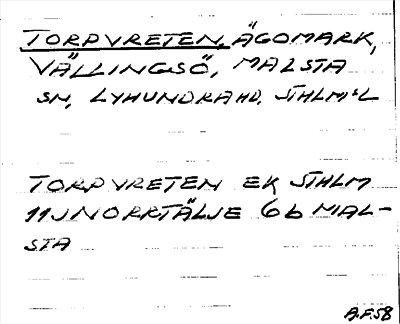 TORPVRETEN, ÄGOMARK,
VÄLLINGSÖ, MALSTA
SN, LYHUNDRA HD, STHLM:S L
TORPVRETEN EK STHLM
11J NORRTÄLJE 6b MAL-
STA
A.F.58